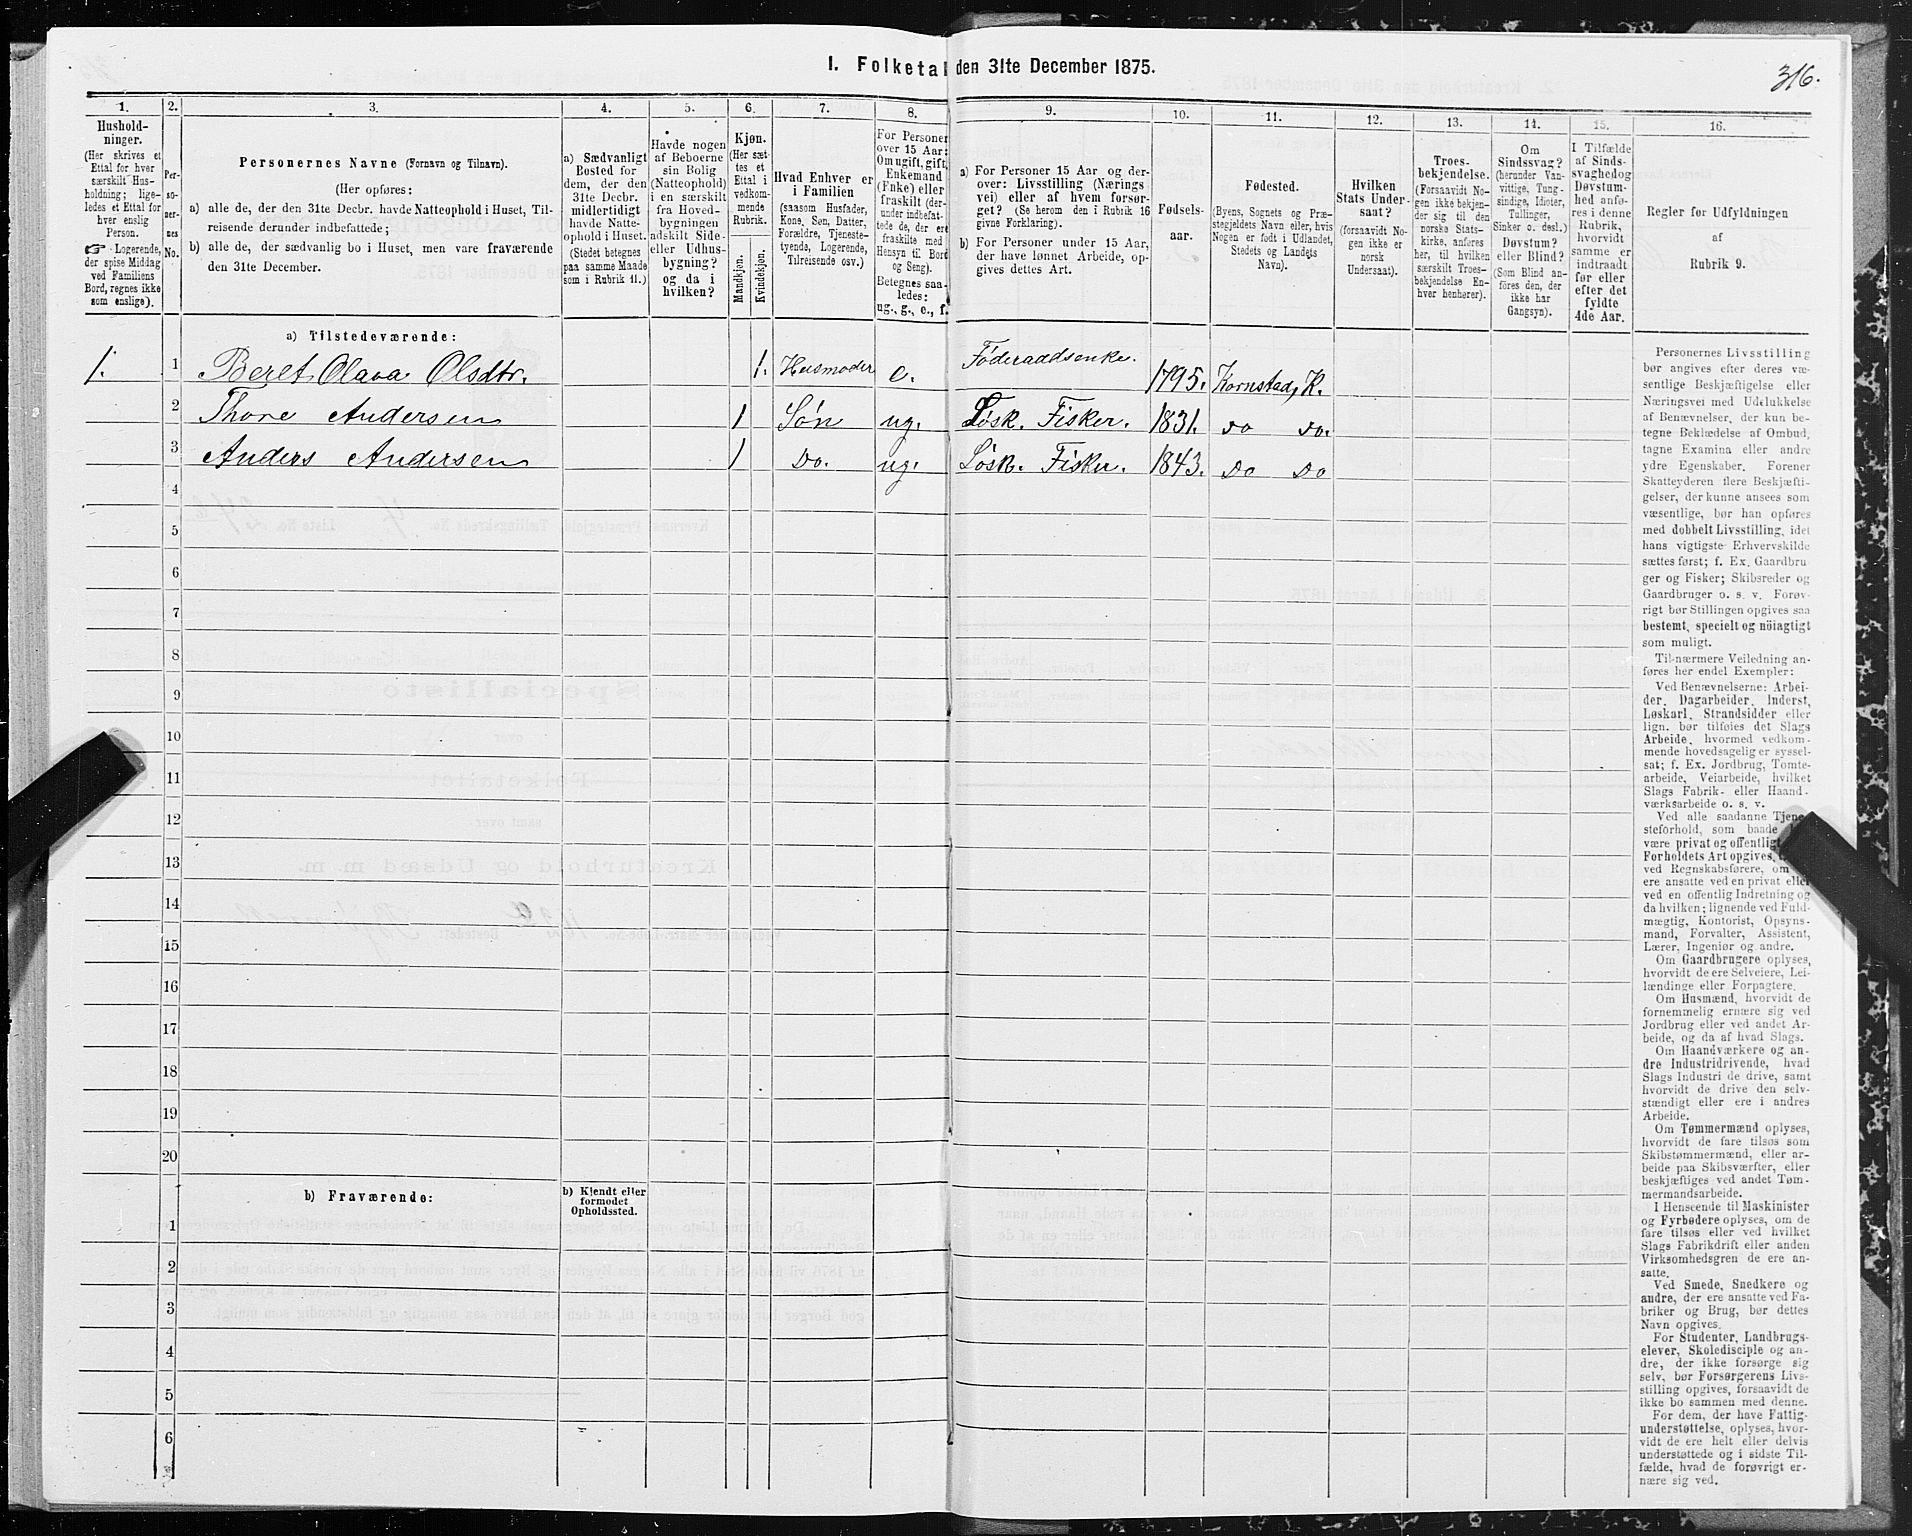 I. Folketal den 31te December 1875.
316.
1.
2.
3.
4.
5.
6.
7.
8.
9.
10.
11.
12.
13.
14.
15.
16.
Hushold-
ninger.
(Her skrives et
Ettal for hver
særskilt Hus-
holdning; lige-
ledes et Ettal for
hver enslig
Person.
☞ Logerende,
der spise Middag
ved Familiens
Bord, regnes ikke
som enslige).
Per-
so-
ner-
nes
No.
Personernes Navne (Fornavn og Tilnavn).
(Her opføres:
a) alle de, der den 31te Decbr. havde Natteophold i Huset, Til-
reisende derunder indbefattede;
b) alle de, der sædvanlig bo i Huset, men vare fraværende
den 31te December.
a) Sædvanligt
Bosted for
dem, der den
31te Decbr.
midlertidigt
havde Natte-
ophold i Huset.
(Stedet betegnes
paa samme Maade
som i Rubrik 11.)
Havde nogen
af Beboerne
sin Bolig
(Natteophold)
i en særskilt
fra Hoved-
bygningen
adskilt Side-
eller Udhus-
bygning?
og da i
hvilken?
Kjøn.
(Her sæt-
tes et
Ettal i
vedkom-
mende
Rubrik.
Mandkjøn.
Kvindekjøn.
Hvad Enhver er
i Familien
(saasom Husfader,
Kone, Søn, Datter,
Forældre, Tjeneste-
tyende, Logerende,
Tilreisende osv.)
For Personer
over 15 Aar:
Om ugift, gift,
Enkemand
(Enke) eller
fraskilt (der-
under indbefat-
tede de, der ere
fraskilte med
Hensyn til Bord
og Seng).
Betegnes saa-
ledes:
ug., g., e., f.
a) For Personer 15 Aar og der-
over: Livsstilling (Nærings
vei) eller af hvem forsør-
get? (Se herom den i Rubrik 16
givne Forklaring).
b) For Personer under 15 Aar,
der have lønnet Arbeide, op-
gives dettes Art.
Fødsels-
aar.
Fødested.
(Byens, Sognets og Præ-
stegjeldets Navn eller, hvis
Nogen er født i Udlandet,
Stedets og Landets
Navn).
Hvilken
Stats Under-
saat?
(forsaavidt No-
gen ikke er
norsk
Undersaat).
Troes-
bekjendelse.
(Forsaavidt No-
gen ikke bekjen-
der sig til den
norske Stats-
kirke, anføres
her, til hvilken
særskilt Troes-
bekjendelse En-
hver henhører).
Om
Sindssvag?
(herunder Van-
vittige, Tung-
sindige, Idioter,
Tullinger,
Sinker o. desl.)
Døvstum?
eller Blind?
(Som Blind an-
føres den, der
ikke har
Gangsyn).
I Tilfælde
af Sinds-
svaghed og
Døvstum-
hed anfø-
res i denne
Rubrik,
hvorvidt
samme er
indtraadt
før eller
efter det
fyldte
4de Aar.
Regler for Udfyldningen
af
Rubrik 9.
a) Tilstedeværende:
1. 1 Beret Olava Olsdtr. 1. Husmoder e. Föderaadsenke. 1795. Kornstad, K.
2 Thore Andersen 1 Søn ug. Løsk. Fisker. 1831. do do.
3 Anders Andersen 1 Do. ug. Løsk. Fisker. 1843. do do
4
5
6
7
8
9
10
11
12
13
14
15
16
17
18
19
20
b) Fraværende:
b) Kjendt eller
formodet
Opholdssted.
1
2
3
4
5
6
Personernes Livsstilling
bør angives efter deres væ-
sentlige Beskjæftigelse eller
Næringsvei med Udelukkelse
af Benævnelser, der kun be-
tegne Beklædelse af Ombud,
tagne Examina eller andre
ydre Egenskaber. Forener
Skatteyderen flere Beskjæfti-
gelser, der kunne ansees som
væsentlige, bør han opføres
med dobbelt Livsstilling, idet
hans vigtigste Erhvervskilde
sættes først; f. Ex. Gaardbru
ger og Fisker; Skibsreder og
Gaardbruger o. s. v. Forøv-
rigt bør Stillingen opgives saa
bestemt, specielt og nöiagtigt
som muligt.
Til nærmere Veiledning an-
føres her endel Exempler:
Ved Benævnelserne: Arbei-
der, Dagarbeider, Inderst,
Løskarl, Strandsidder eller
lign. bør tilføies det Slags
Arbeide, hvormed vedkom-
mende hovedsagelig er syssel-
sat; f. Ex. Jordbrug, Tomte-
arbeide, Veiarbeide, hvilket
Slags Fabrik- eller Haand-
værksarbeide o. s. v.
Ved alle saadanne Tjene-
steforhold, som baade
være privat og offentlig
Forholdets Art opgives,
ved Regnskabsførere, om
ere ansatte ved en privat eller
ved en offentlig Indretning og
da hvilken; lignende ved Fuld-
mægtig, Kontorist, Opsyns-
mand, Forvalter, Assistent,
Lærer, Ingeniør og andre.
Om Gaardbrugere oplyses,
hvorvidt de ere Selveiere, Lei-
lændinge eller Forpagtere.
Om Husmænd, hvorvidt de
fornemmelig ernære sig ved
Jordbrug eller ved andet Ar-
beide, og da af hvad Slags.
Om Haandværkere og an-
dre Industridrivende, hvad
Slags Industri de drive, samt
hvorvidt de drive den selv-
stændigt eller ere i andres
Arbeide.
Om Tømmermænd oplyses,
hvorvidt de fare tilsøs som
Skibstømmermænd, eller ar-
beide paa Skibsværfter, eller
beskjæftiges ved andet Tøm-
mermandsarbeide.
I Henseende til Maskinister
og Fyrbødere oplyses, om de
fare tilsøs eller ved hvilket
Slags Fabrikdrift eller anden
Virksomhedsgren de ere an-
satte.
Ved Smede, Snedkere og
andre, der ere ansatte ved Fa-
briker og Brug, bør dettes
Navn opgives.
For Studenter, Landbrugs-
elever, Skoledisciple og an-
dre, der ikke forsørge sig
selv, bør Forsørgerens Livs-
stilling opgives, forsaavidt de
ikke bo sammen med denne.
For dem, der have Fattig-
understøttelse, oplyses, hvor-
vidt de ere helt eller delvis
understøttede og i sidste Til-
fælde, hvad de forøvrigt er-
nære sig ved.